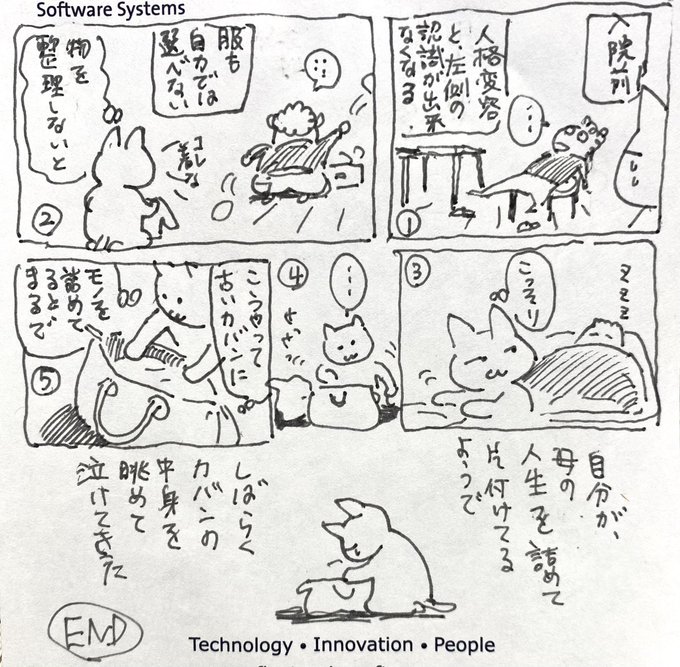 Software Systems
入院前
人格変容
と、左側の
認識が出来
なくなる
…
①
服も
自力では
選べない
…
コレな
着な
物を
整理しないと
②
③
こっそり
zzz
④
…
せっせっ
こうやって
古いカバンに
モノを
詰めて
ると
まるで
⑤
自分が、
母の
人生を詰めて
片付けてる
ようで
しばらく
カバンの
中身を
眺めて
泣けてきた
END
Technology • Innovation • People